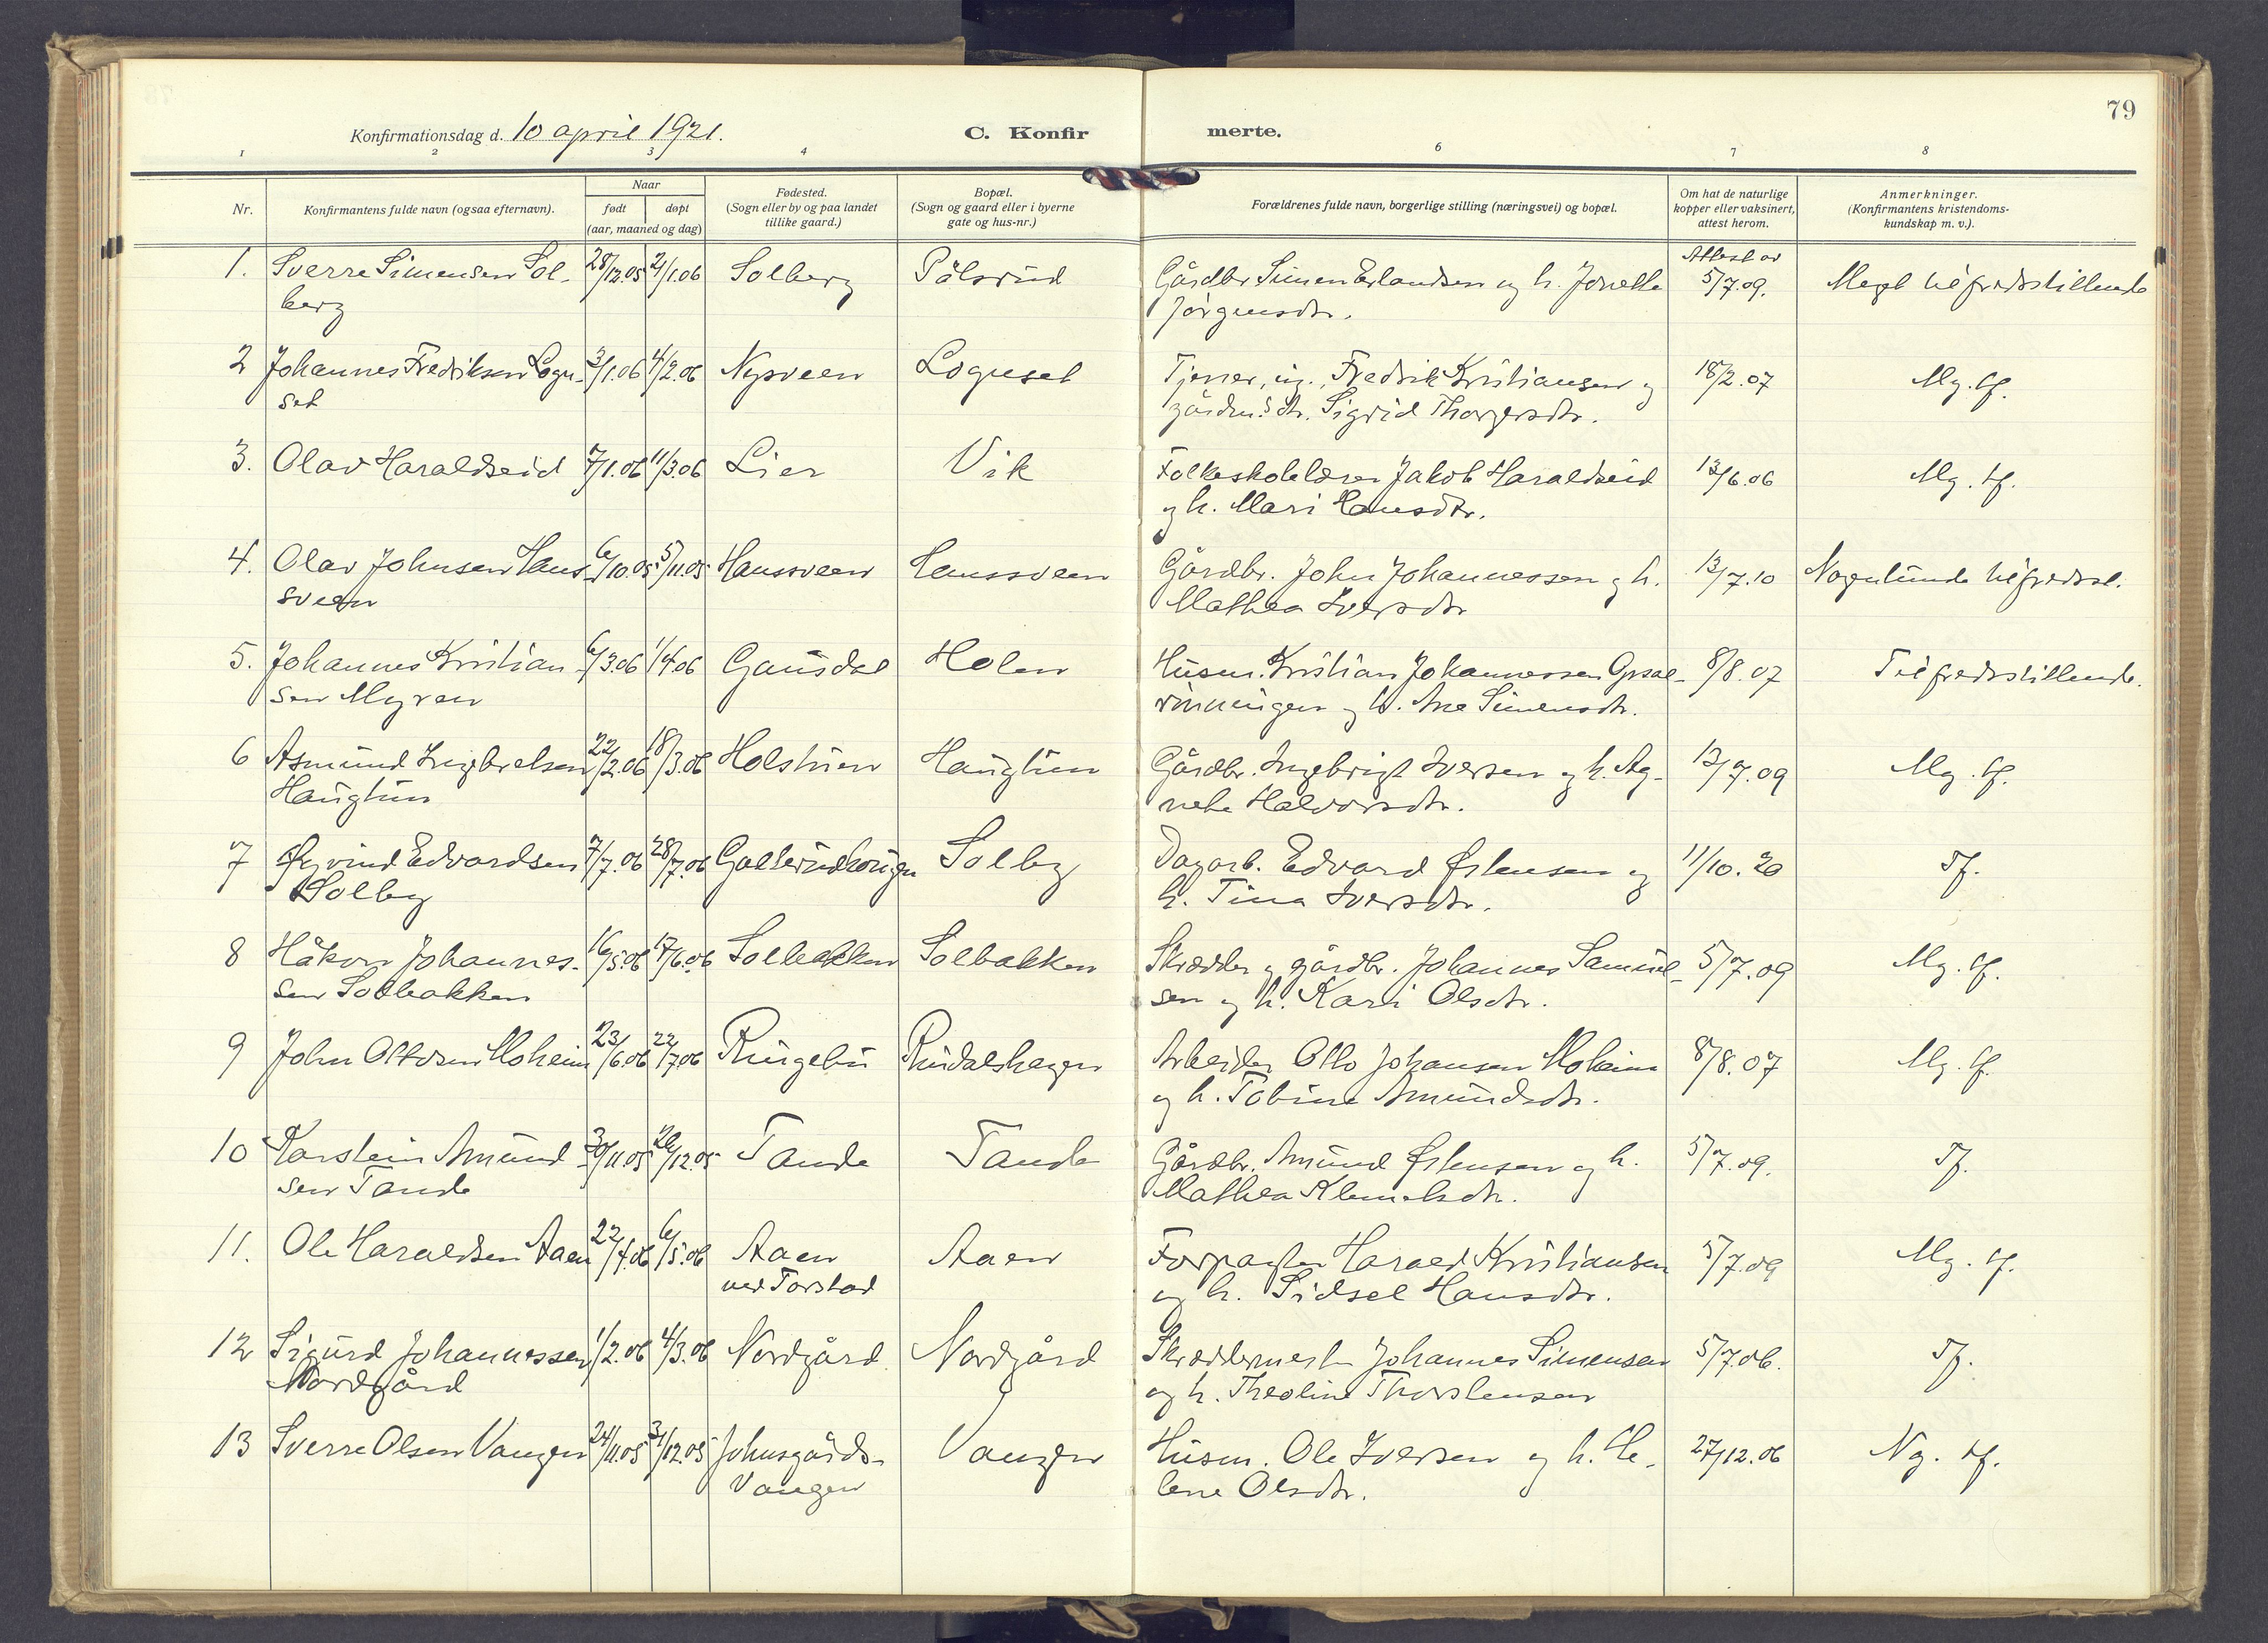 79
Konfirmationsdag d. 10 april 1921.
C. Konfir merte.
1 2 3 4 6 7 8
Nr.
Konfirmantens fulde navn (ogsaa efternavn).
Naar
født døpt
(aar, maaned og dag)
Fødested.
(Sogn eller by og paa landet
tillike gaard.)
Bopæl.
(Sogn og gaard eller i byerne
gate og hus-nr.)
Forældrenes fulde navn, borgerlige stilling (næringsvei) og bopæl.
Om hat de naturlige
kopper eller vaksinert,
attest herom.
Anmerkninger.
(Konfirmantens kristendoms-
kundskap m. v.).
Attest av
1. Sverre Simensen Sol- 28/12.05 21/1.06 Solberg Pålsrud Gårdbr. Simen Erlandsen og h. Jonette 5/7.09. Meget tilfredsstillende
berg Jörgensdtr.
2 Johannes Fredriksen Logn- 3/1.06 4/2.06 Nysveen Lognset Tjener, ug., Fredrik Kristiansen og 18/2.07 Mg. tf.
set Sigrid Thorgersdtr.
3. Olav Haraldseid 7/1.06 11/3.06 Lier Vik Folkeskolelærer Jakob Haraldseid 13/6.06 Mg. tf.
og h. Mari Hansdtr.
4. Olav Johnsen Hans- 6/10.05 5/11.05 Hanssveen Hanssveen Gårdbr. John Johannessen og h. 13/7.10 Nogenlunde tilfredsst.
sveen Mathea Iversdtr
5. Johannes Kristian- 6/3.06 1/4.06 Gausdal Holen Husm. Kristian Johannessen Opsal- 8/8.07 Tilfredsstillende.
sen Myren rinningen og h. Ane Simensdtr.
6 Asmund Ingebretsen 22/2.06 18/3.06 Holstuen Haugtun Gårdbr. Ingebrigt Iversen og h. Ag- 13/7.09 Mg. tf.
Haugtun nete Halvorsdtr.
7 Øyvind Edvardsen 7/7.06 28/7.06 Solby Dagarb. Edvard Østensen og 11/10.20 Tf.
Solby h. Tina Iversdtr.
8 Håkon Johannes- 16/5.06 17/6.06 Solbakken Solbakken Skrædder og gårdbr. Johannes Samuel- 5/7.09 Mg. tf.
sen Solbakken sen og h. Kari Olsdtr.
9 John Ottosen Moheim 23/6.06 22/7.06 Ringebu Rudalshagen Arbeider Otto Johansen Moheim 8/8.07 Mg. tf.
og h. Tobine Amundsdtr.
10 Karstein Amund- 30/11.05 26/12.05 Tande Tande Gårdbr. Amund Østensen og h. 5/7.09. Tf.
sen Tande Mathea Klemetsdtr.
11. Ole Haraldsen Aaen 22/4.06 6/5.06 Aaen Aaen Forpagter Harald Kristiansen 5/7.09 Mg. tf.
ved Forstad og h. Sidsel Hansdtr.
12 Sigurd Johannessen 1/2.06 4/3.06 Nordgård Nordgård Skræddermester Johannes Simensen 5/7.06. Tf.
Nordgård og h. Theoline Thorstensen
13 Sverre Olsen Vangen 24/11.05 31/12.05 Johnsgårds- Vangen Husm. Ole Iversen og h. He- 27/12.06 Ng. tf.
Vangen lene Olsdtr.